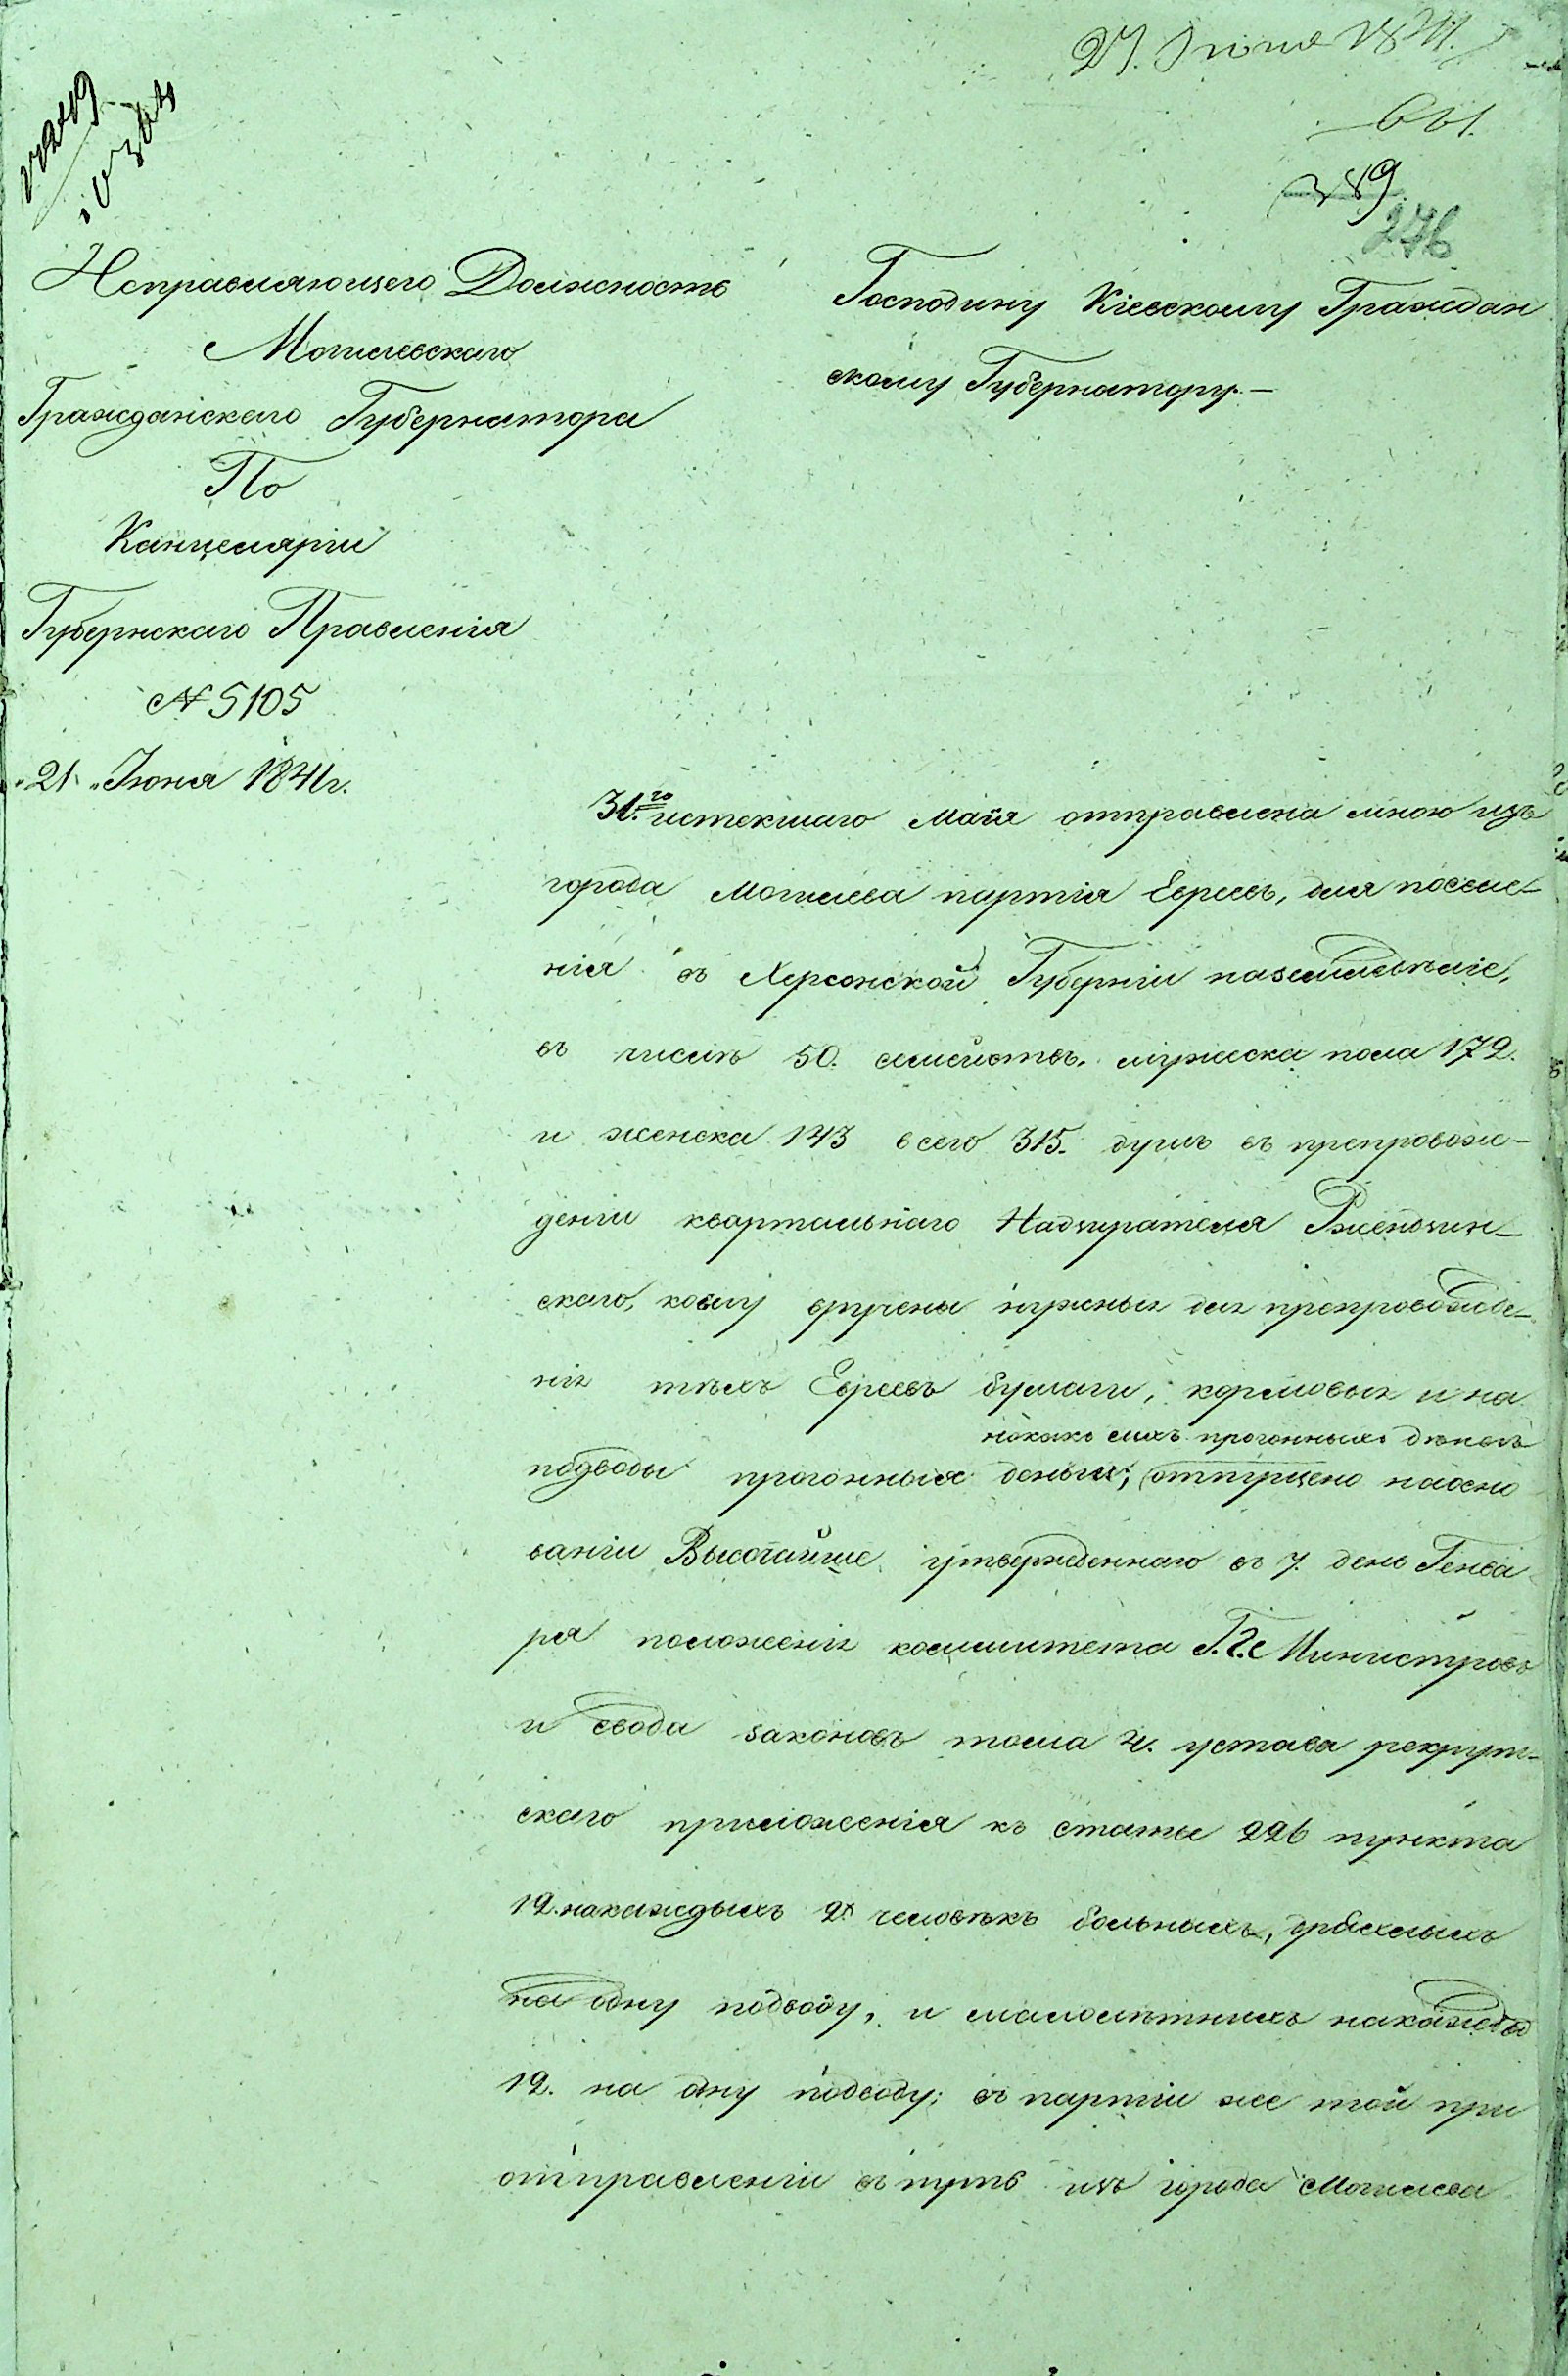 27. Июня 1841.
661.
389
276
Исправляющего Должность
Могилевскаго
Гражданскаго Губернатора
По
Канцелярии
Губернскаго Правленія
№ 5105
"21" Июня 1841 г.
Господину Кіевскому Граждан
скому Губернатору.—
31.го истекшаго Маія отправлена мною изъ
города Могилева партія Евреевъ, для поселе-
нія въ Херсонской Губерніи на земледѣліе,
въ числѣ 50. семействъ. мужеска пола 172.
и женска 143 всего 315. душъ въ препровож-
деніи квартальнаго Надзирателя
скаго, коему вручены нужныя для препровожде-
нія тѣхъ Евреевъ бумаги, кормовыя и на
подводы прогонныя деньги; отпущено на осно
прогонныхъ денегъ
ваніи Высочайше утвержденнаго въ 7. день Генва
ря положенія коммитета Г.Г. Министровъ
и свода законовъ тома 4. устава рекрут-
скаго приложенія къ статье 226 пункта
12. на каждыхъ 2х человѣкъ больныхъ, дряхлыхъ
на одну подводу, и малолѣтнихъ на кажды
12. на одну подводу; въ партіи же той при
отправленіи въ путь изъ города Могилева